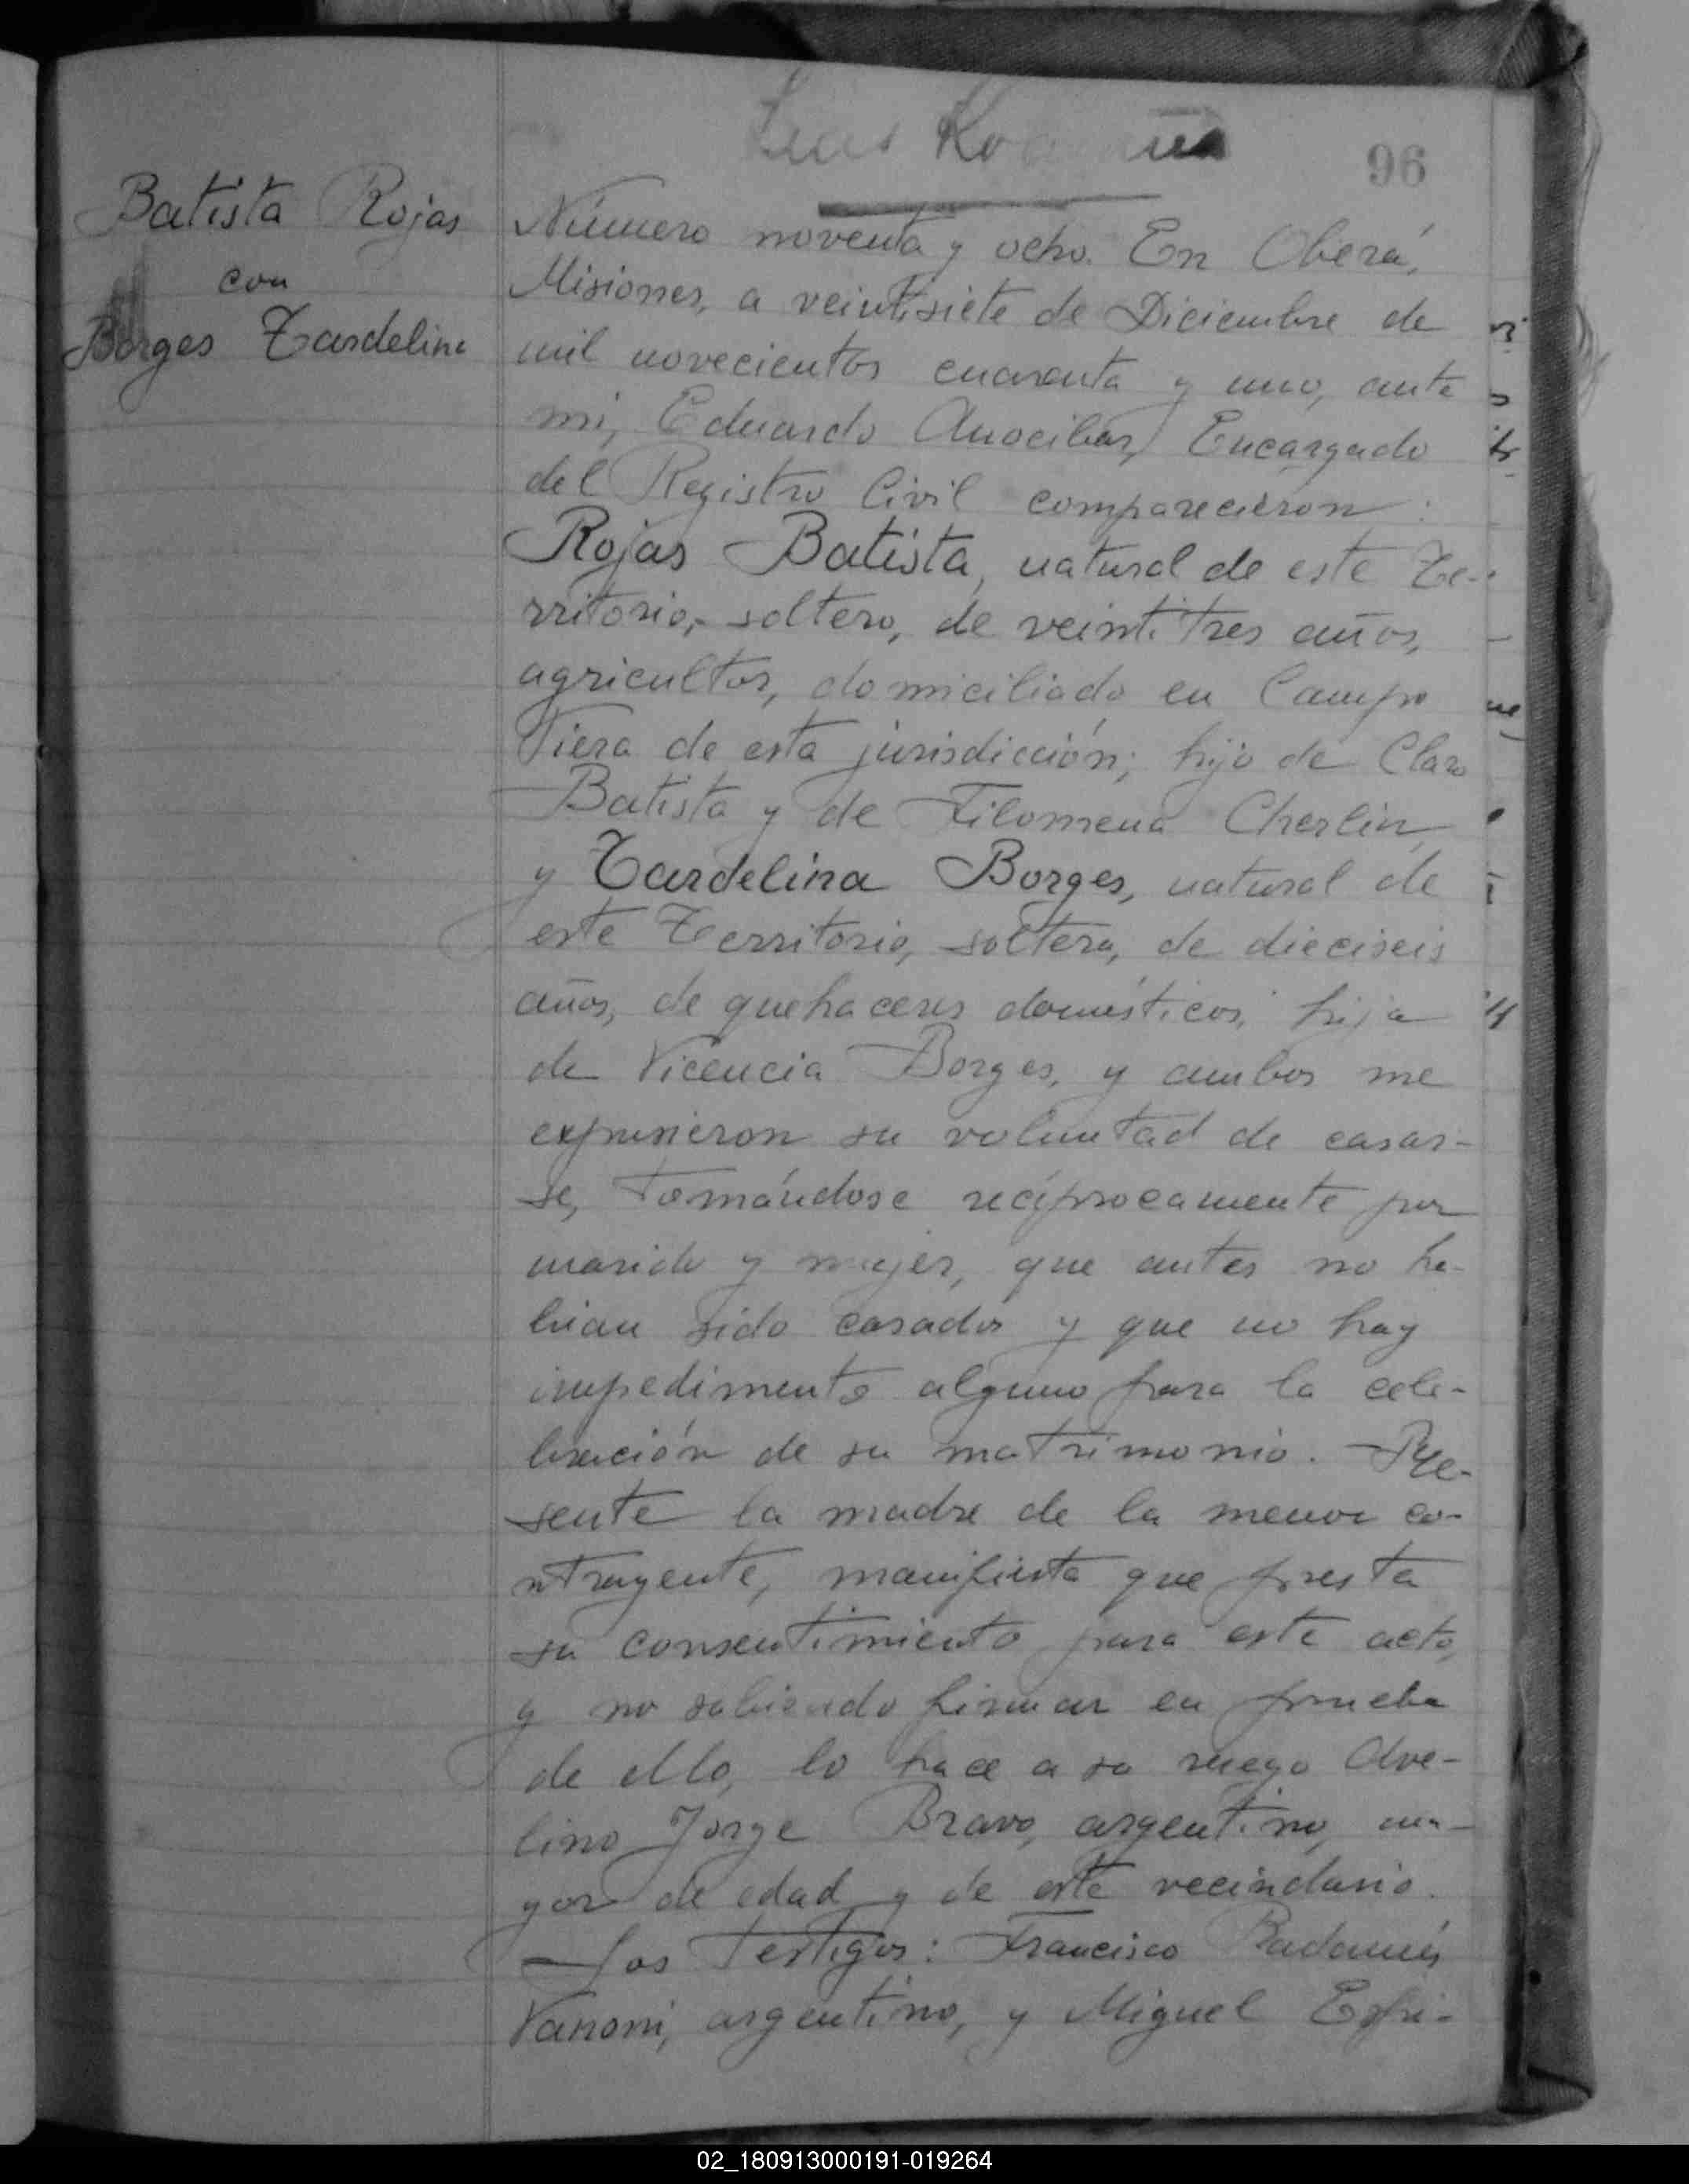 96
Batista Rojas
con
Borges Tardelina
Número noventa y ocho. En Oberá,
Misiones, a veintisiete de Diciembre de
mil novecientos cuarenta y uno, ante
mi, Eduardo Anocibar, Encargado
del Registro Civil comparecieron:
Rojas Batista, natural de este Te-
rritorio, soltero, de veintitres años,
agricultor, domiciliado en Campo
Viera de esta jurisdicción; hijo de Claro
Batista y de Filomena Cherlin,
y Tardelina Borges, natural de
este Territorio, soltera, de dieciseis
años, de quehaceres domésticos, hija
de Vicencia Borges, y ambos me
expusieron su voluntad de casar-
se, tomándose recíprocamente por
marido y mujer, que antes no ha-
bian sido casados y que no hay
impedimento alguno para la cele-
bración de su matrimonio. Pre-
sente la madre de la menor co-
ntrayente, manifiesta que presta
su consentimiento para este acto,
y no sabiendo firmar en prueba
de ello, lo hace a su ruego Ave-
lino Jorge Bravo, argentino, ma-
yor de edad y de este vecindario.
Los Testigos: Francisco Radamés
Vanoni, argentino, y Miguel Espi-
02_180913000191-019264